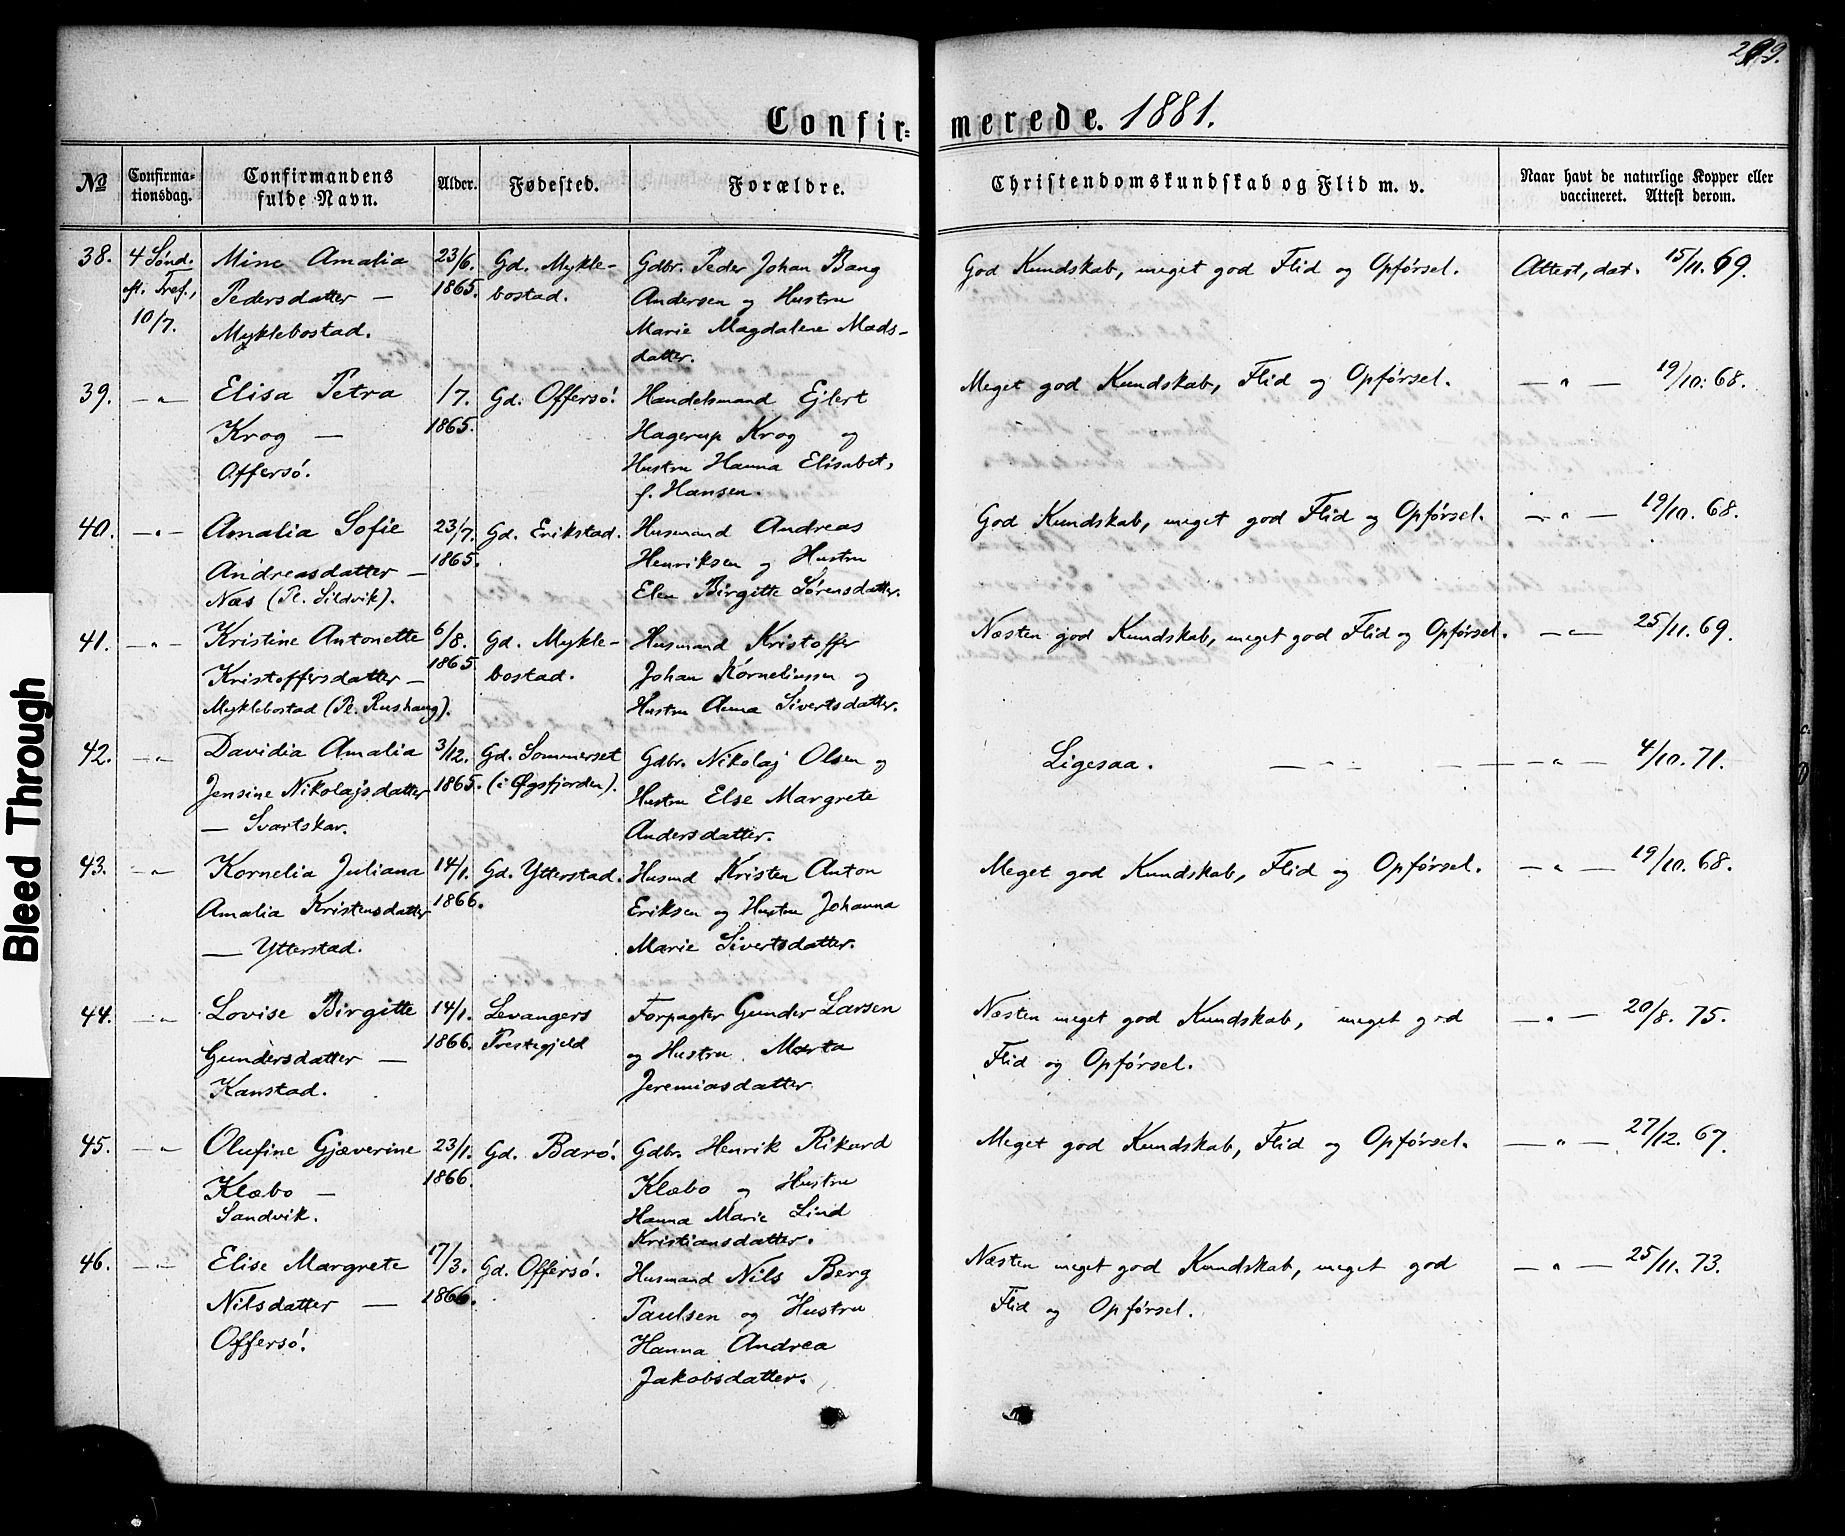 299.
Confir=
merede. 1881.
No
Confirma-
tionsdag.
Confirmandens
fulde Navn.
Alder.
Fødested.
Forældre.
Christendomskundskab og Flid m. v.
Naar havt de naturlige Kopper eller
vaccineret. Attest derom.
38.
4 Sønd.
eft. Tref.,
10/7.
Mine Amalia
Pedersdatter —
Myklebostad.
23/6.
1865.
Gd. Mykle-
bostad.
Gdbr. Peder Johan Bang
Andersen og Hustru
Marie Magdalene Mads-
datter.
God Kundskab, meget god Flid og Opførsel.
Attest, dat. 15/11. 69.
39.
— " —
Elisa Petra
Krog —
Offersø.
1/7.
1865.
Gd. Offersø.
Handelsmand Ejlert
Hagerup Krog og
Hustru Hanna Elisabet,
f. Hansen.
Meget god Kundskab, Flid og Opførsel.
— " — 19/10. 68.
40.
— " —
Amalia Sofie
Andreasdatter —
Næs (Pl. Sildvik).
23/7.
1865.
Gd. Erikstad.
Husmand Andreas
Henriksen og Hustru
Elen Birgitte Sørensdatter.
God Kundskab, meget god Flid og Opførsel.
— " — 19/10. 68.
41.
— " —
Kristine Antonette
Kristoffersdatter —
Myklebostad (Pl. Rushaug).
6/8.
1865
Gd. Mykle-
bostad.
Husmand Kristoffer
Johan Korneliussen og
Hustru Anna Sivertsdatter.
Næsten god Kundskab, meget god Flid og Opførsel.
— " — 25/11. 69.
42.
— " —
Davidia Amalia
Jensine Nikolajsdatter
— Svartskar.
3/12.
1865.
Gd. Sommerset
(i Øgsfjorden).
Gdbr. Nikolaj Olsen og
Hustru Else Margrete
Andersdatter.
Ligesaa. — " — —
— " — 4/10. 71.
43.
— " —
Kornelia Juliana
Amalia Kristensdatter
— Ytterstad.
14/1.
1866.
Gd. Ytterstad.
Husmd Kristen Anton
Eriksen og Hustru Johanna
Marie Sivertsdatter.
Meget god Kundskab, Flid og Opførsel.
— " — 19/10. 68.
44.
— " —
Lovise Birgitte
Gundersdatter —
Kanstad.
14/1.
1866.
Levangers
Prestegjeld
Forpagter Gunder Larsen
og Hustru Marta
Jeremiasdatter
Næsten meget god Kundskab, meget god
Flid og Opførsel.
— " — 20/8. 75.
45.
— " —
Olufine Gjæverine
Klæbo —
Sandvik.
23/1.
1866.
Gd. Barø.
Gdbr. Henrik Rikard
Klæbo og Hustru
Hanna Marie Lind
Kristiansdatter.
Meget god Kundskab, Flid og Opførsel.
— " — 27/12. 67.
46.
— " —
Elise Margrete
Nilsdatter —
Offersø.
17/3.
1866.
Gd. Offersø.
Husmand Nils Berg
Paulsen og Hustru
Hanna Andrea
Jakobsdatter.
Næsten meget god Kundskab, meget god
Flid og Opførsel.
— " — 25/11. 73.
Bleed Through